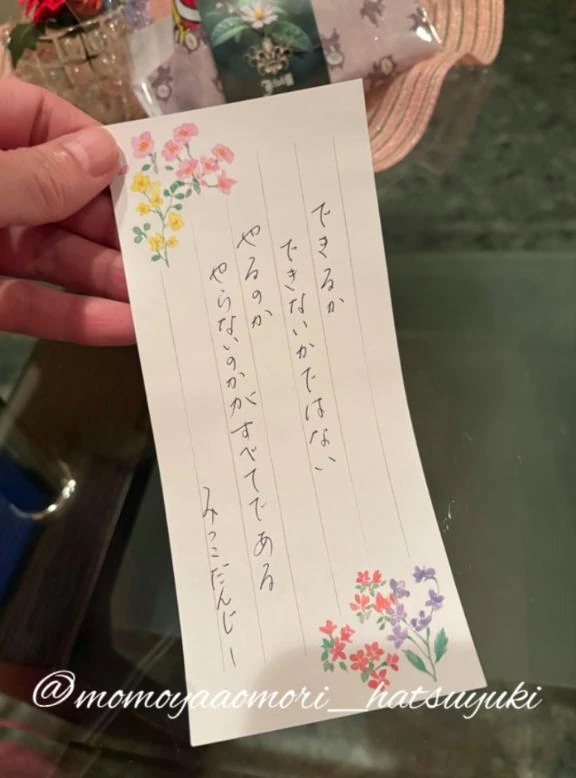 できるか
できないかではない
やるのか
やらないのかがすべてである
みっこだんじー
@momoyaaomori_hatsuyuki